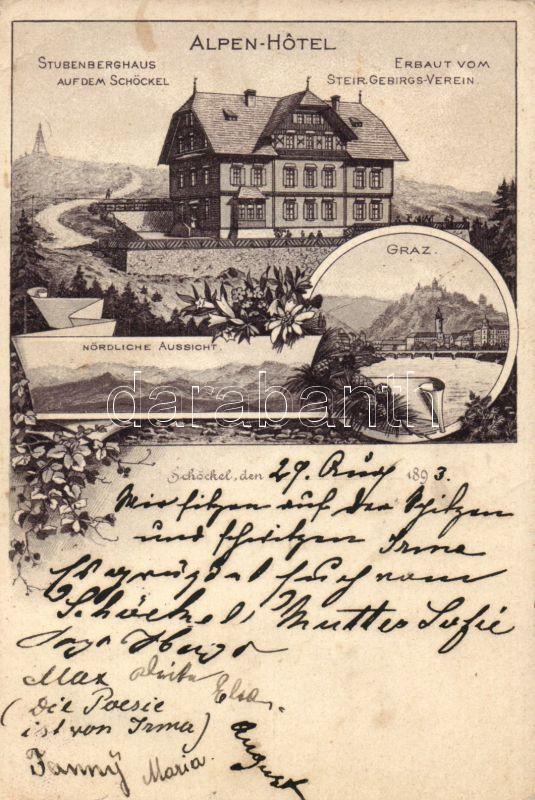 ALPEN-HÔTEL
STUBENBERGHAUS
AUF DEM SCHÖCKEL
ERBAUT VOM
STEIR. GEBIRGS-VEREIN.
GRAZ.
NÖRDLICHE AUSSICHT.
darabanth
Schöckel, den 29. Aug 1893.
Wir sitzen auf der Spitzen
und schwitzen Irma
Es grüßet Euch vom
Schöckel, Mutter Sofie
Hugo
Max Elsa.
(die Poesie
ist von Irma)
Fanny Maria.
August